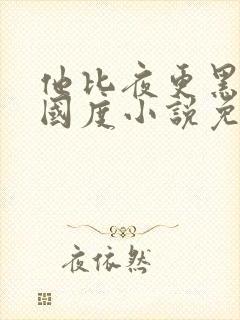 他比夜更黑
國度小說免
夜依然